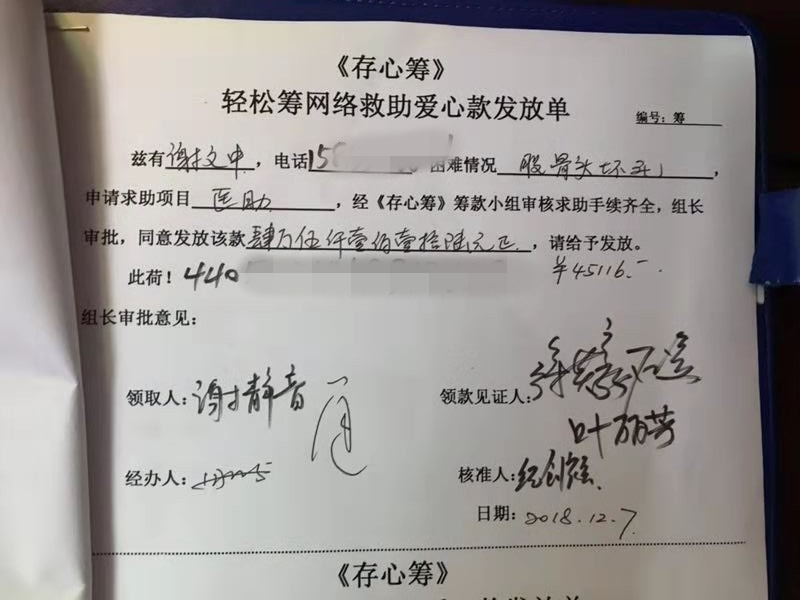 《存心筹》
轻松筹网络救助爱心款发放单
编号：筹
兹有谢文中，电话15 困难情况 股骨头坏死，
申请求助项目 医助，经《存心筹》筹款小组审核求助手续齐全，组长
审批，同意发放该款肆万伍仟壹佰壹拾陆元正，请给予发放。
此荷！440 ￥45116.-
组长审批意见：
领取人：谢静音 领款见证人：
叶丽芳
经办人： 核准人：
日期：2018.12.7
《存心筹》